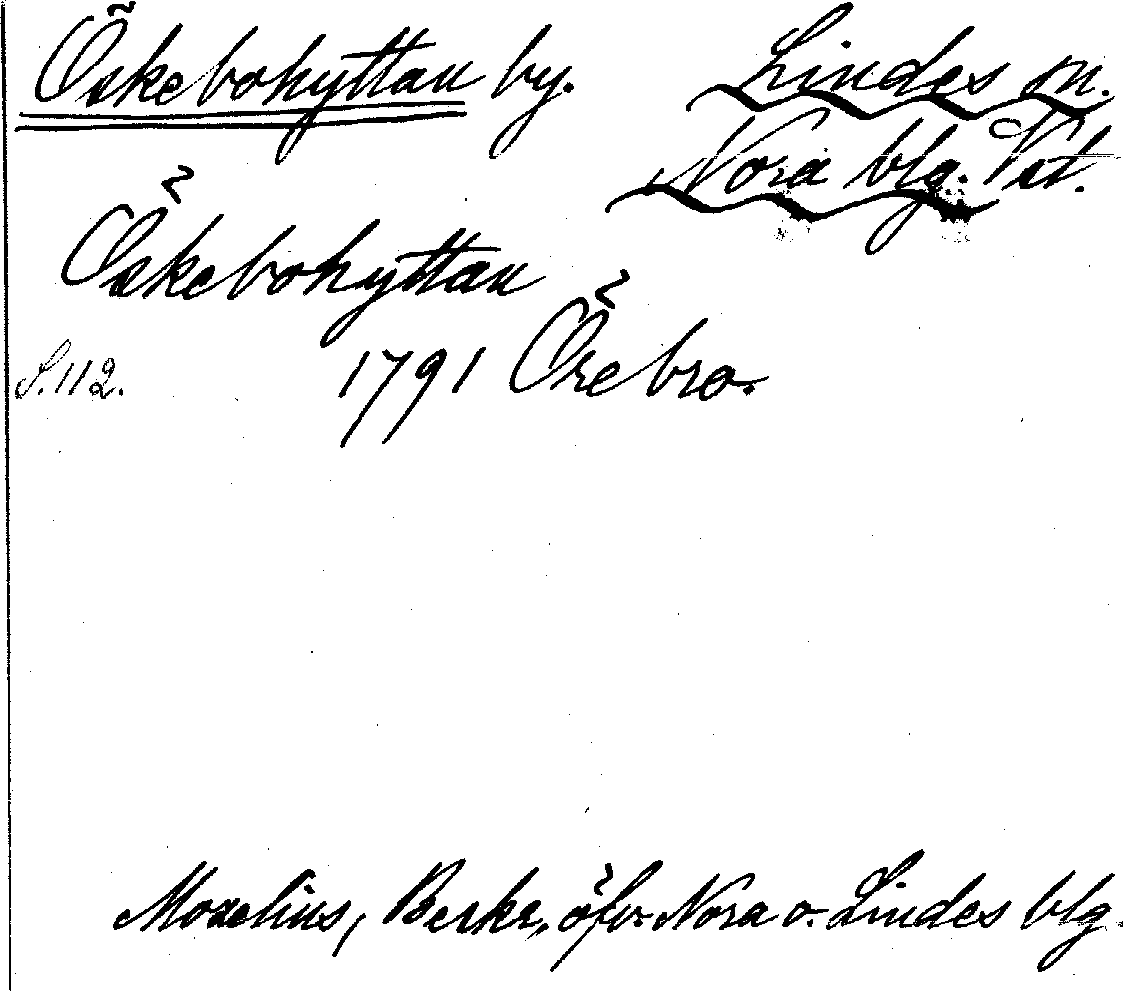 Öskebohyttan by. Lindes sn.
Nora blg. Vst.
Öskebohyttan
S. 112. 1791 Örebro.
Moxelius, Berkr, öfv. Nora o. Lindes blg.